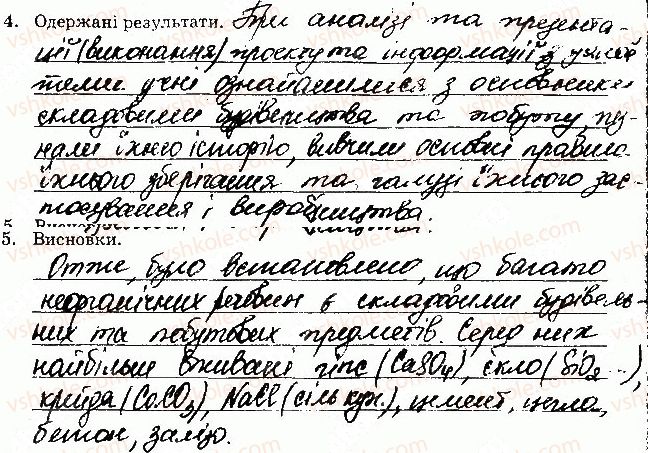 4. Одержані результати. При аналізі та презента-
ції (виконання) проекту та інформації з цієї
теми учні ознайомилися з основними
складовими будівництва та побуту, пі-
знали їхню історію, вивчили основні правила
їхнього зберігання та галузі їхнього зас-
тосування і виробництва.
5. Висновки.
Отже, було встановлено, що багато
неорганічних речовин є складовими будівель-
них та побутових предметів. Серед них
найбільш вживані гіпс (CaSO4), скло (SiO2...),
крейда (CaCO3), NaCl (сіль кух.), цемент, цегла,
бетон, залізо.